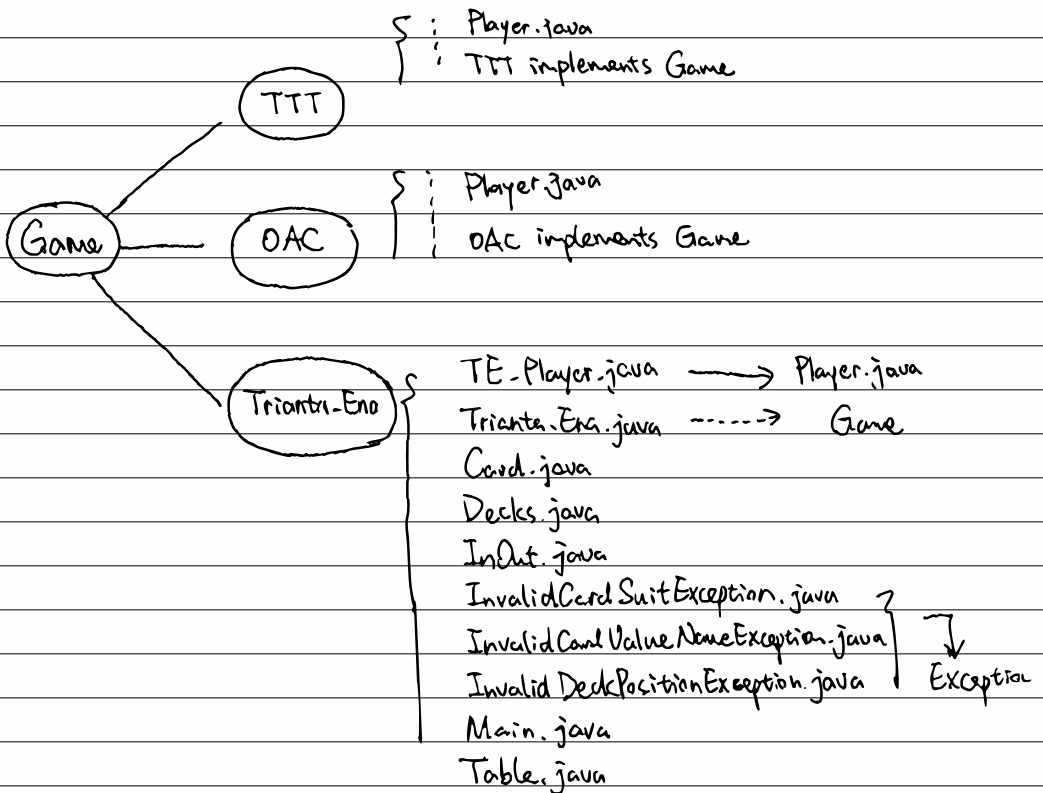 Player.java
TTT implements Game
TTT
Player.java
OAC implements Game
Game
OAC
TE_Player.java Player.java
Trianta_Ena.java Game
Trianta_Ena
Card.java
Decks.java
InOut.java
InvalidCardSuitException.java
InvalidCardValueNameException.java
InvalidDeckPositionException.java Exception
Main.java
Table.java